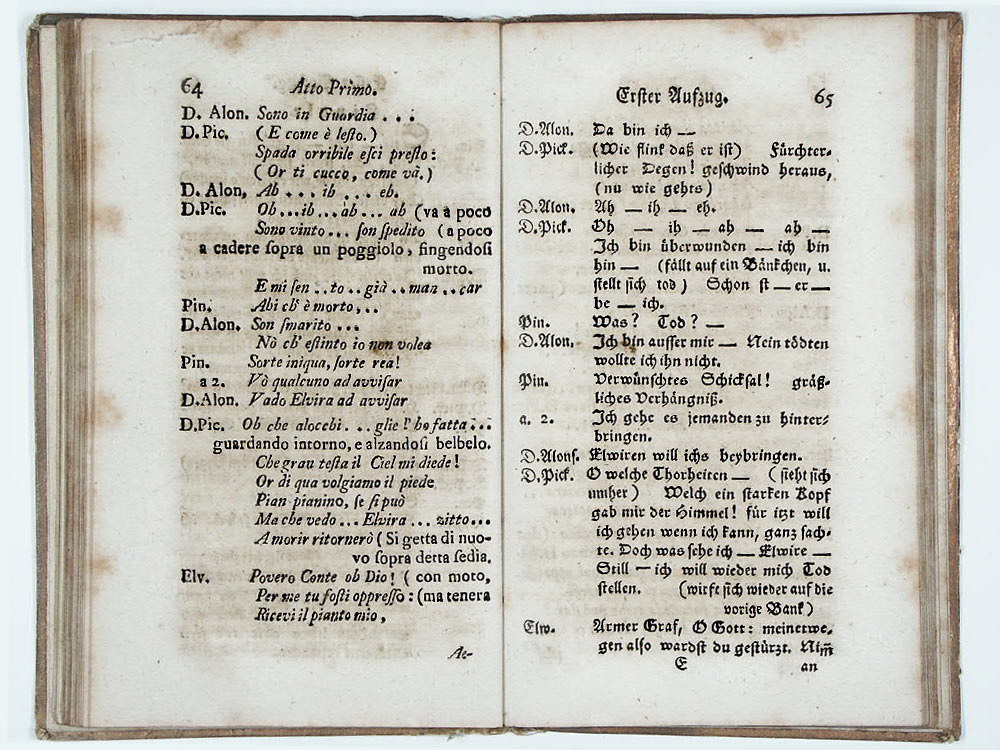 64 Atto Primo.
D. Alon. Sono in Guardia . . .
D. Pic. (E come è leſto.)
Spada orribile eſci preſto:
(Or ti cucco, come và.)
D. Alon, Ab . . . ib . . . eb.
D.Pic. Ob...ib...ab... ab (va a poco
Sono vinto... ſon ſpedito (a poco
a cadere ſopra un poggiolo, fingendoſi
morto.
E mi ſen . . to . . già . . man . . car
Pin. Abi ch' è morto, . .
D.Alon. Son ſmarito . . .
Nò ch' eſtinto io non volea
Pin. Sorte iniqua, ſorte rea!
a 2. Vò qualcuno ad avviſar
D.Alon. Vado Elvira ad avviſar
D.Pic. Ob che alocchi. . . glie l' ho fatta . . .
guardando intorno, e alzandoſi belbelo.
Che gran teſta il Ciel mi diede!
Or di qua volgiamo il piede
Pian pianino, ſe ſi può
Ma che vedo... Elvira ... zitto...
A morir ritornerò (Si getta di nuo-
vo ſopra detta ſedia.
Elv. Povero Conte ob Dio! (con moto,
Per me tu foſti oppreſſo: (ma tenera
Ricevi il pianto mio,
Ac-
Erſter Aufzug. 65
D.Alon. Da bin ich —
D.Pick. (Wie flink daß er iſt) Fürchter-
licher Degen! geſchwind heraus,
(nu wie gehts)
D.Alon. Ah — ih — eh.
D.Pick. Oh — ih — ah — ah —
Ich bin überwunden — ich bin
hin — (fällt auf ein Bänkchen, u.
ſtellt ſich tod) Schon ſt — er —
be — ich.
Pin. Was? Tod? —
D.Alon. Ich bin auſſer mir — Nein tödten
wollte ich ihn nicht.
Pin. Verwünſchtes Schickſal! gräß-
liches Verhängniß.
a. 2. Ich gehe es jemanden zu hinter-
bringen.
D.Alonſ. Elwiren will ichs beybringen.
D.Pick. O welche Thorheiten — (ſieht ſich
umher) Welch ein ſtarken Kopf
gab mir der Himmel! für itzt will
ich gehen wenn ich kann, ganz ſach-
te. Doch was ſehe ich — Elwire —
Still — ich will wieder mich Tod
ſtellen. (wirft ſich wieder auf die
vorige Bank)
Elw. Armer Graf, O Gott: meinetwe-
gen alſo wardſt du geſtürzt. Nim̃
E an